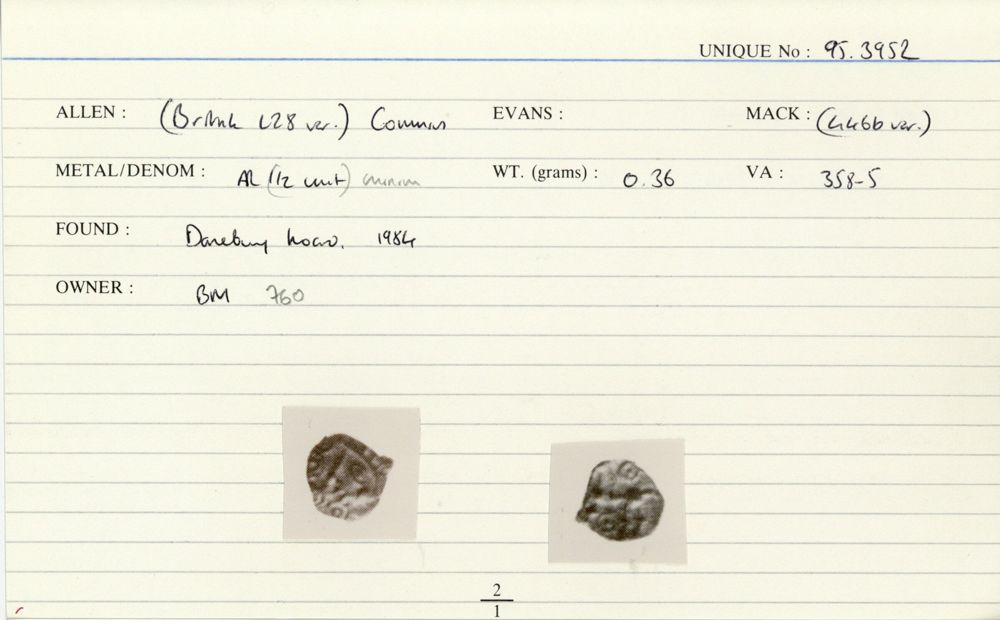 UNIQUE No : 95.3952
ALLEN : (British L28 var.) Commius EVANS : MACK : (446b var.)
METAL/DENOM : AR (1/2 unit) minim WT. (grams) : 0.36 VA : 358-5
FOUND : Danebury hoard. 1984
OWNER : BM 760
2
1